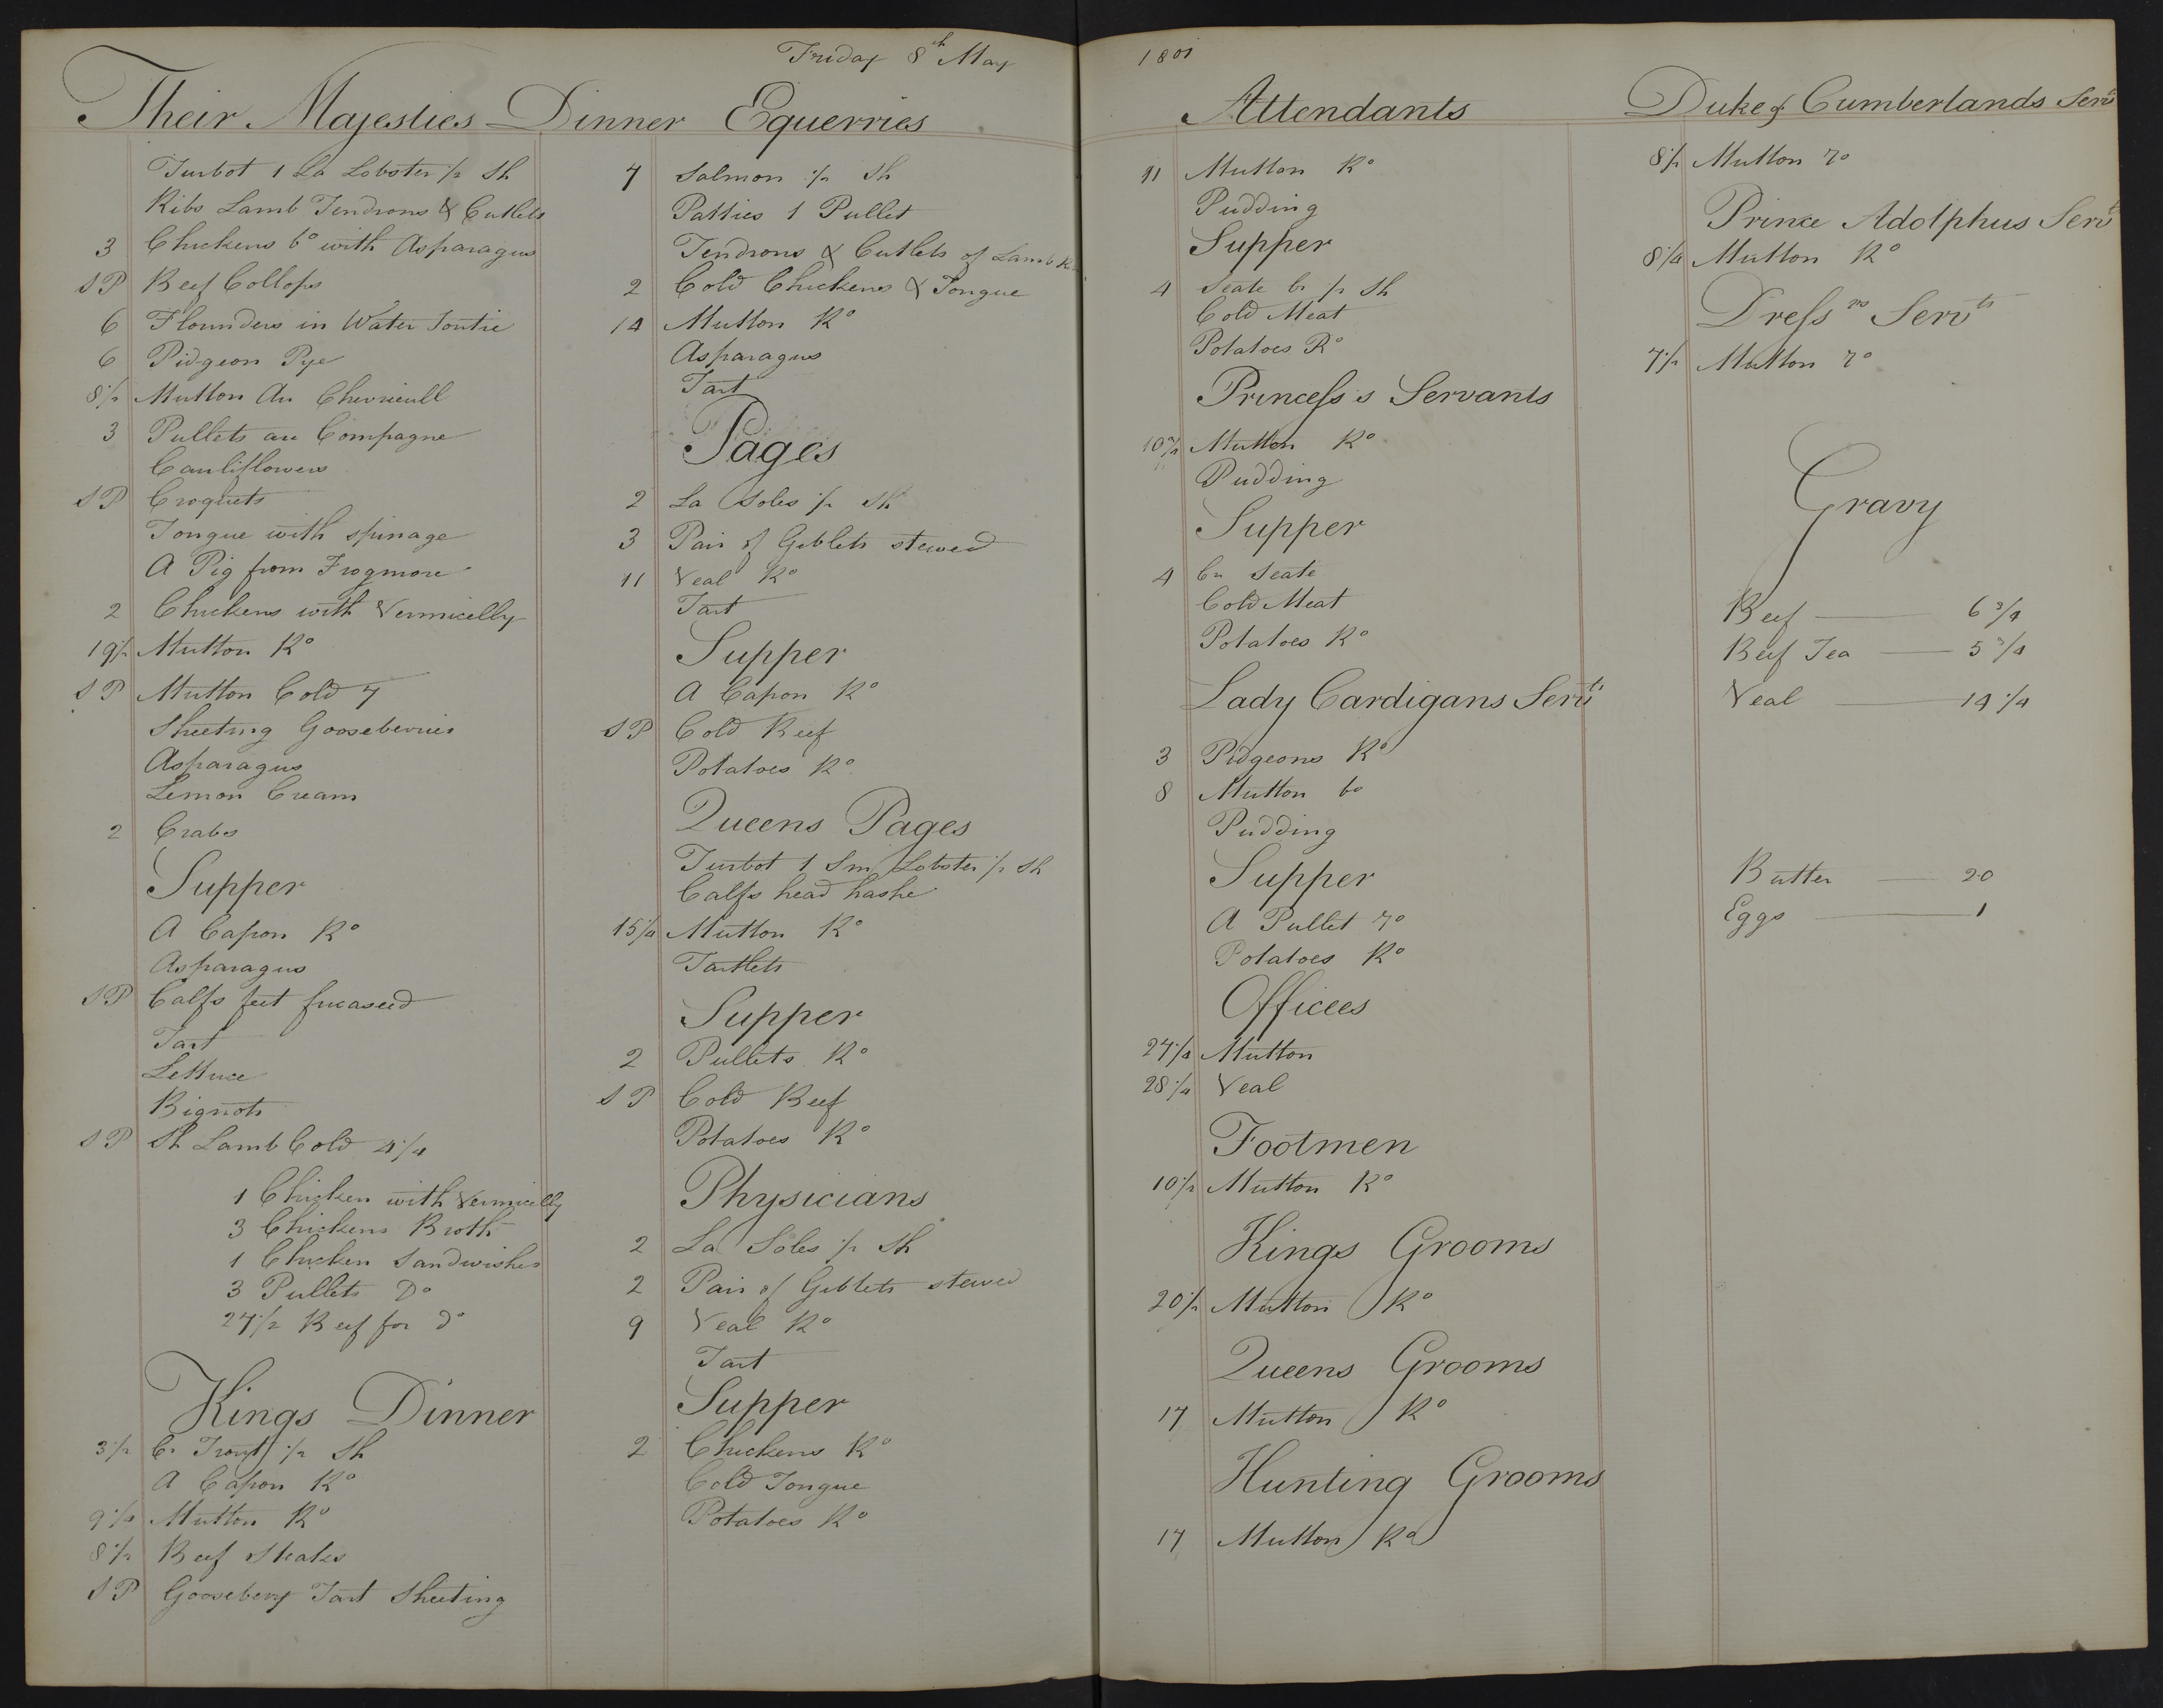 Friday 8th May 1801
Their Majesties Dinner
Turbot 1 La Lobster 1/2 Sh
Ribs Lamb Tendrons & Cutlets
3 Chickens bo with Asparagus
S P Beef Collops
6 Flounders in Water
6 Pidgeon Pye
8 1/2 Mutton Au Chevrieull
3 Pullets au Compagne
Cauliflowers
S P Croquets
Tongue with spinage
A Pig from Frogmore
2 Chickens with Vermicelly
19 1/2 Mutton Ro
S P Mutton Cold 7
Sheeting Gooseberries
Asparagus
Lemon Cream
2 Crabs
Supper
A Capon Ro
Asparagus
S P Calfs feet fricaseed
Tart
Lettuce
Bignots
S P Sh Lamb Cold 4 1/4
1 Chicken with Vermicelly
3 Chickens Broth
1 Chicken Sandwishes
3 Pullets Do
27 1/2 Beef for do
Kings Dinner
3 1/2 Cr Trout 1/2 Sh
A Capon Ro
9 1/4 Mutton Ro
8 1/2 Beef Steaks
S P Gooseberry Tart Sheeting
Equerries
7 Salmon 1/2 Sh
Patties 1 Pullet
Tendrons & Cutlets of Lamb
2 Cold Chickens & Tongue
14 Mutton Ro
Asparagus
Tart
Pages
2 La Soles 1/2 Sh
3 Pair of Giblets stewed
11 Veal Ro
Tart
Supper
A Capon Ro
S P Cold Beef
Potatoes Ro
Queens Pages
Turbot 1 Sm Lobster 1/2 Sh
Calfs head hashe
15 1/4 Mutton Ro
Tartlets
Supper
2 Pullets Ro
S P Cold Beef
Potatoes Ro
Physicians
2 La Soles 1/2 Sh
2 Pair of Giblets stewed
9 Veal Ro
Tart
Supper
2 Chickens Ro
Cold Tongue
Potatoes Ro
Attendants
11 Mutton Ro
Pudding
Supper
4 Scate Cr 1/2 Sh
Cold Meat
Potatoes Ro
Princess's Servants
10 3/4 Mutton Ro
Pudding
Supper
4 Cr Scate
Cold Meat
Potatoes Ro
Lady Cardigans Servts
3 Pidgeons Ro
8 Mutton bo
Pudding
Supper
A Pullet ro
Potatoes Ro
Offices
27 1/4 Mutton
28 1/4 Veal
Footmen
10 1/2 Mutton Ro
Kings Grooms
20 1/2 Mutton Ro
Queens Grooms
17 Mutton Ro
Hunting Grooms
17 Mutton Ro
Duke of Cumberlands Servts
8 1/2 Mutton ro
Prince Adolphus Servts
8 1/4 Mutton Ro
Dressrs Servts
7 1/2 Mutton ro
Gravy
Beef 6 3/4
Beef Tea 5 3/4
Veal 14 1/4
Butter 20
Eggs 1